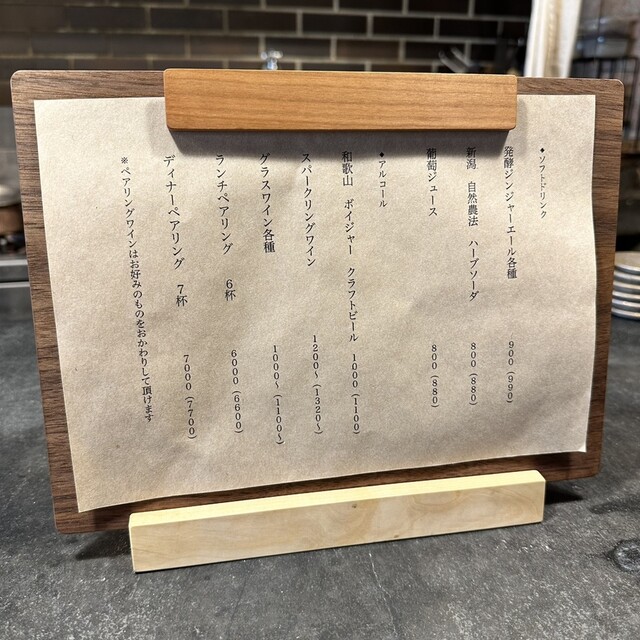 ◆ソフトドリンク
発酵ジンジャーエール各種 900(990)
新潟 自然農法 ハーブソーダ 800(880)
葡萄ジュース 800(880)
◆アルコール
和歌山 ボイジャー クラフトビール 1000(1100)
スパークリングワイン 1200~(1320~)
グラスワイン各種 1000~(1100~)
ランチペアリング 6杯 6000(6600)
ディナーペアリング 7杯 7000(7700)
※ペアリングワインはお好みのものをおかわりして頂けます